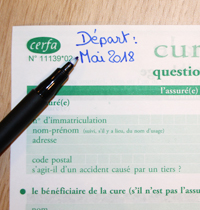 Départ :
Mai 2018
cerfa
N° 11139*02
cur
question
l'assuré(e)
assuré(e)
n° d'immatriculation
nom-prénom (suivi, s'il y a lieu, du nom d'usage)
adresse
code postal
s'agit-il d'un accident causé par un tiers ?
le bénéficiaire de la cure (s'il n'est pas l'assu
nom